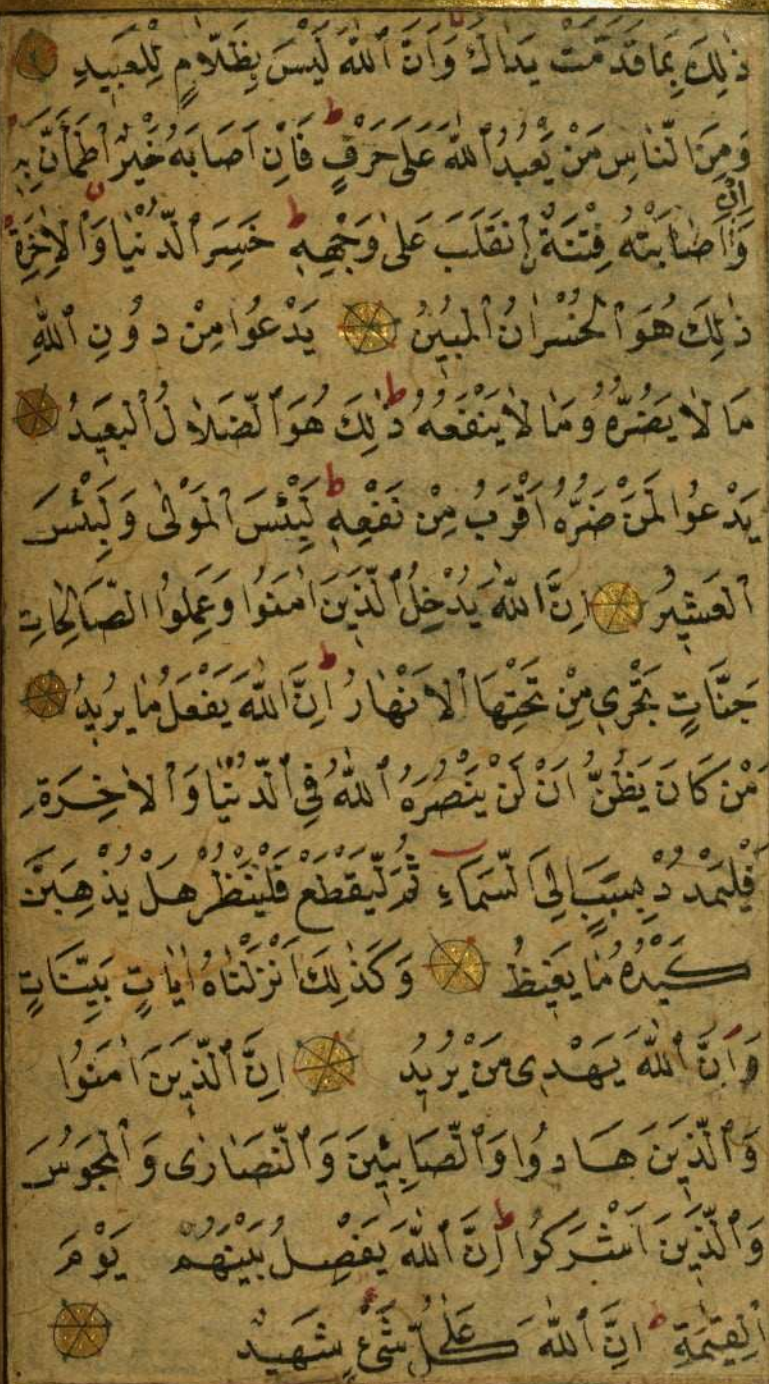 ذٰلِكَ بِمَا قَدَّمَتْ يَدَاكَ وَاَنَّ ٱللّٰهَ لَيْسَ بِظَلَّامٍ لِلْعَبِيدِ
وَمِنَ ٱلنَّاسِ مَنْ يَعْبُدُ ٱللّٰهَ عَلٰى حَرْفٍ ط فَاِنْ اَصَابَهُ خَيْرٌ ٱطْمَأَنَّ بِهِ
وَاِنْ اَصَابَتْهُ فِتْنَةٌ ٱنْقَلَبَ عَلٰى وَجْهِهِ ط خَسِرَ ٱلدُّنْيَا وَٱلْاٰخِرَةَ ط
ذٰلِكَ هُوَ ٱلْخُسْرَانُ ٱلْمُبِينُ يَدْعُوا مِنْ دُونِ ٱللّٰهِ
مَا لَا يَضُرُّهُ وَمَا لَا يَنْفَعُهُ ط ذٰلِكَ هُوَ ٱلضَّلَالُ ٱلْبَعِيدُ
يَدْعُوا لَمَنْ ضَرُّهُ اَقْرَبُ مِنْ نَفْعِهِ ط لَبِئْسَ ٱلْمَوْلٰى وَلَبِئْسَ
ٱلْعَشِيرُ اِنَّ ٱللّٰهَ يُدْخِلُ ٱلَّذِينَ اٰمَنُوا وَعَمِلُوا ٱلصَّالِحَاتِ
جَنَّاتٍ تَجْرِي مِنْ تَحْتِهَا ٱلْاَنْهَارُ ط اِنَّ ٱللّٰهَ يَفْعَلُ مَا يُرِيدُ
مَنْ كَانَ يَظُنُّ اَنْ لَنْ يَنْصُرَهُ ٱللّٰهُ فِي ٱلدُّنْيَا وَٱلْاٰخِرَةِ
فَلْيَمْدُدْ بِسَبَبٍ اِلَى ٱلسَّمَاءِ ثُمَّ لْيَقْطَعْ فَلْيَنْظُرْ هَلْ يُذْهِبَنَّ
كَيْدُهُ مَا يَغِيظُ وَكَذٰلِكَ اَنْزَلْنَاهُ اٰيَاتٍ بَيِّنَاتٍ
وَاَنَّ ٱللّٰهَ يَهْدِي مَنْ يُرِيدُ اِنَّ ٱلَّذِينَ اٰمَنُوا
وَٱلَّذِينَ هَادُوا وَٱلصَّابِئِينَ وَٱلنَّصَارٰى وَٱلْمَجُوسَ
وَٱلَّذِينَ اَشْرَكُوا ط اِنَّ ٱللّٰهَ يَفْصِلُ بَيْنَهُمْ يَوْمَ
ٱلْقِيٰمَةِ ط اِنَّ ٱللّٰهَ عَلٰى كُلِّ شَيْءٍ شَهِيدٌ